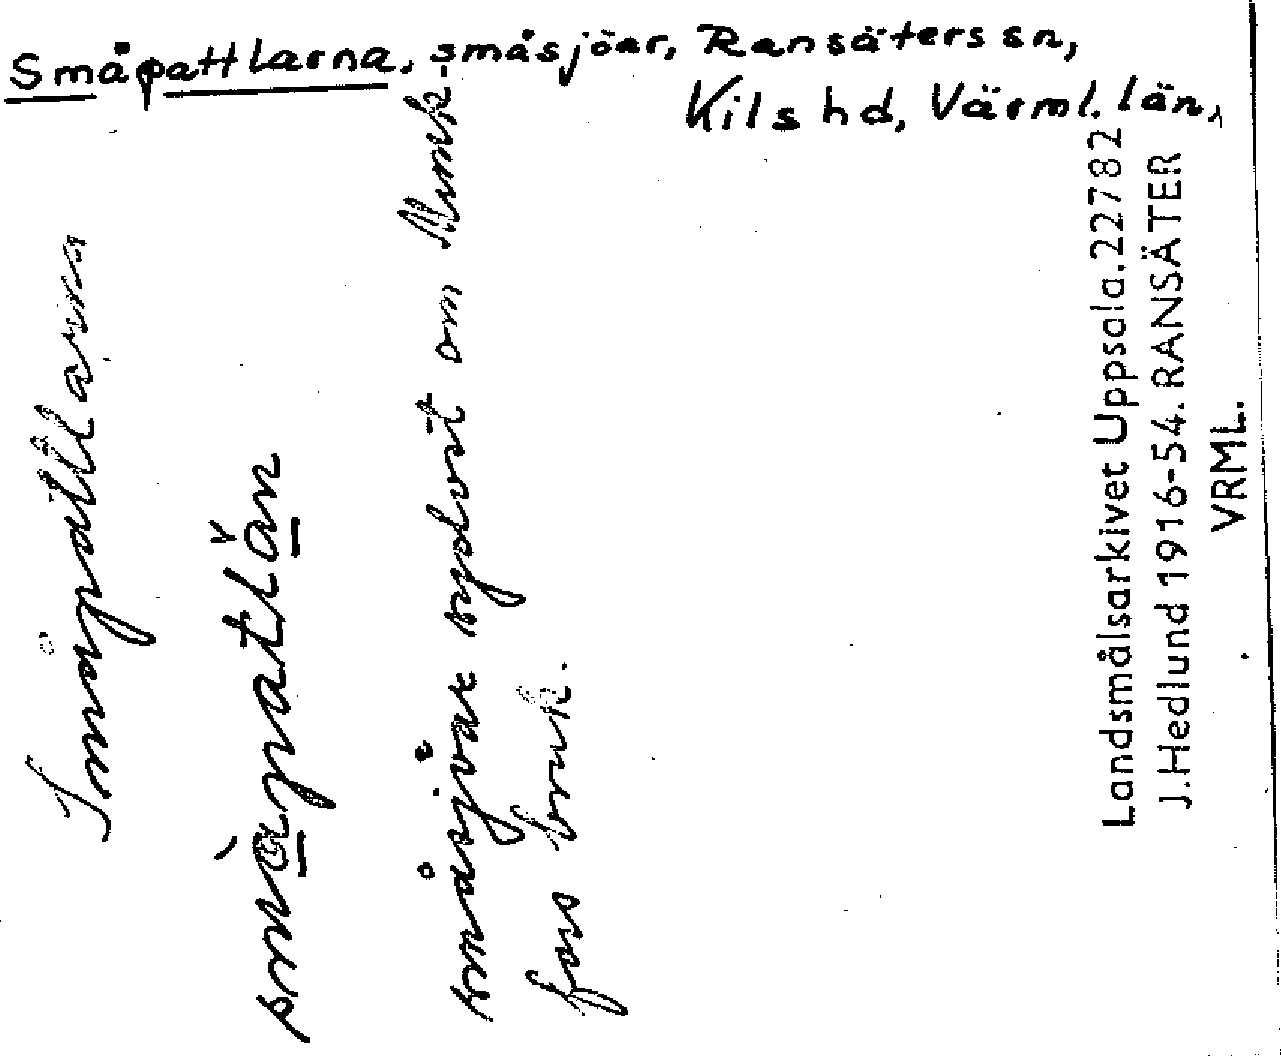 Småpattlarna, småsjöar, Ransäters sn,
Kils hd, Värml. län,
Småpattlarna
småsjöar sydost om Munk-
fors bruk.
Landsmålsarkivet Uppsala. 22782
J. Hedlund 1916-54. RANSÄTER
VRML.